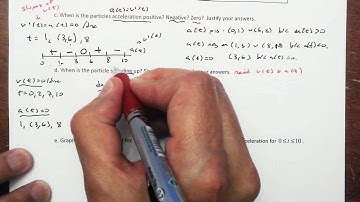 slopes of v(t)
a(t)=v'(t)
c. When is the particles acceleration positive? Negative? Zero? Justify your answers.
v'(t)=a(t)=0/dne
t = 1, (3,6), 8
+ - 0 + -
0 1 3 6 8 10
a(t)
v'(t)
a(t) pos: (0,1) ∪ (6,8) b/c a(t)>0
a(t) neg (1,3) ∪ (8,10) b/c a(t)<0
a(t)=0 (3,6) b/c a(t)=0.
d. When is the particle speeding up?
need v(t) & a(t)
v(t)=0/dne
t=0,2,7,10
a(t)=0
1, (3,6), 8
e. Graph
acceleration for 0 ≤ t ≤ 10.